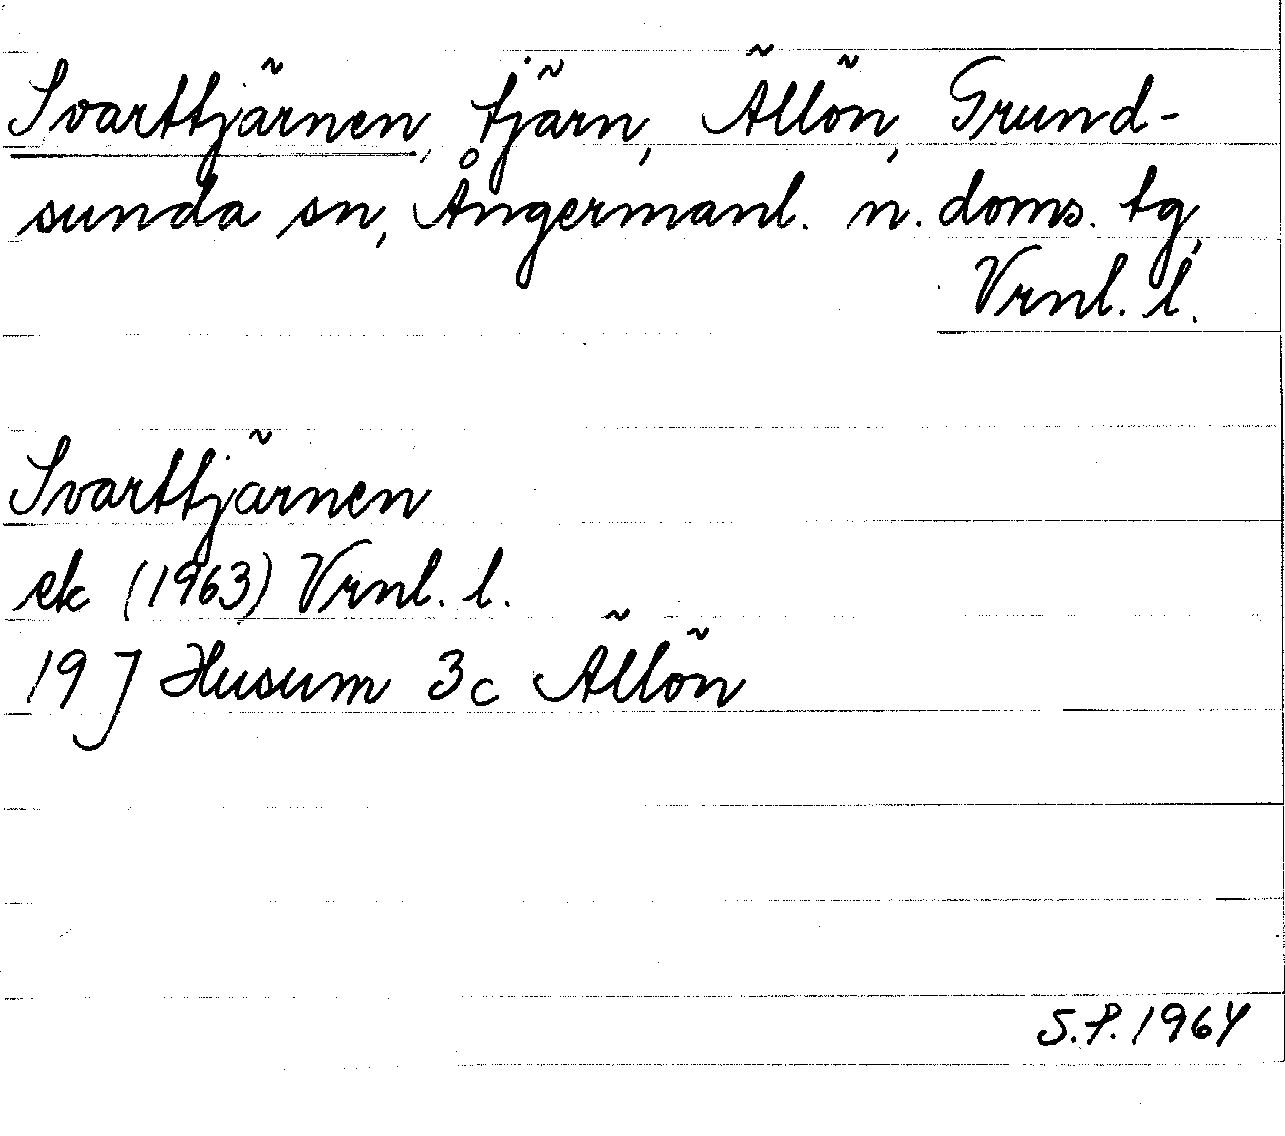 Svarttjärnen, tjärn, Ällön, Grund-
sunda sn, Ångermanl. n. doms. tg,
Vrnl. l.
Svarttjärnen
ek (1963) Vrnl. l.
19 J Husum 3c Ällön
S.P. 1964